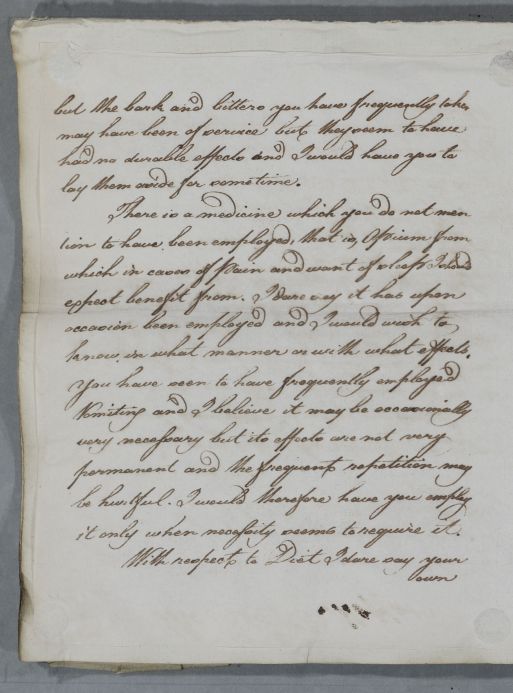 but the bark and bitters you have frequently taken
may have been of service but they seem to have
had no durable effects and I would have you to
lay them aside for some time.
There is a medicine which you do not men
tion to have been employed, that is, Opium from
which in cases of Pain and want of sleep I should
expect benefit from. I dare say it has upon
occasion been employed and I would wish to
know in what manner or with what effects.
You have seen to have frequently employed
Vomiting and I believe it may be occasionally
very necessary but its effects are not very
permanent and the frequent repetition may
be hurtful. I would therefore have you employ
it only when necessity seems to require it.
With respect to Diet I dare say your
own